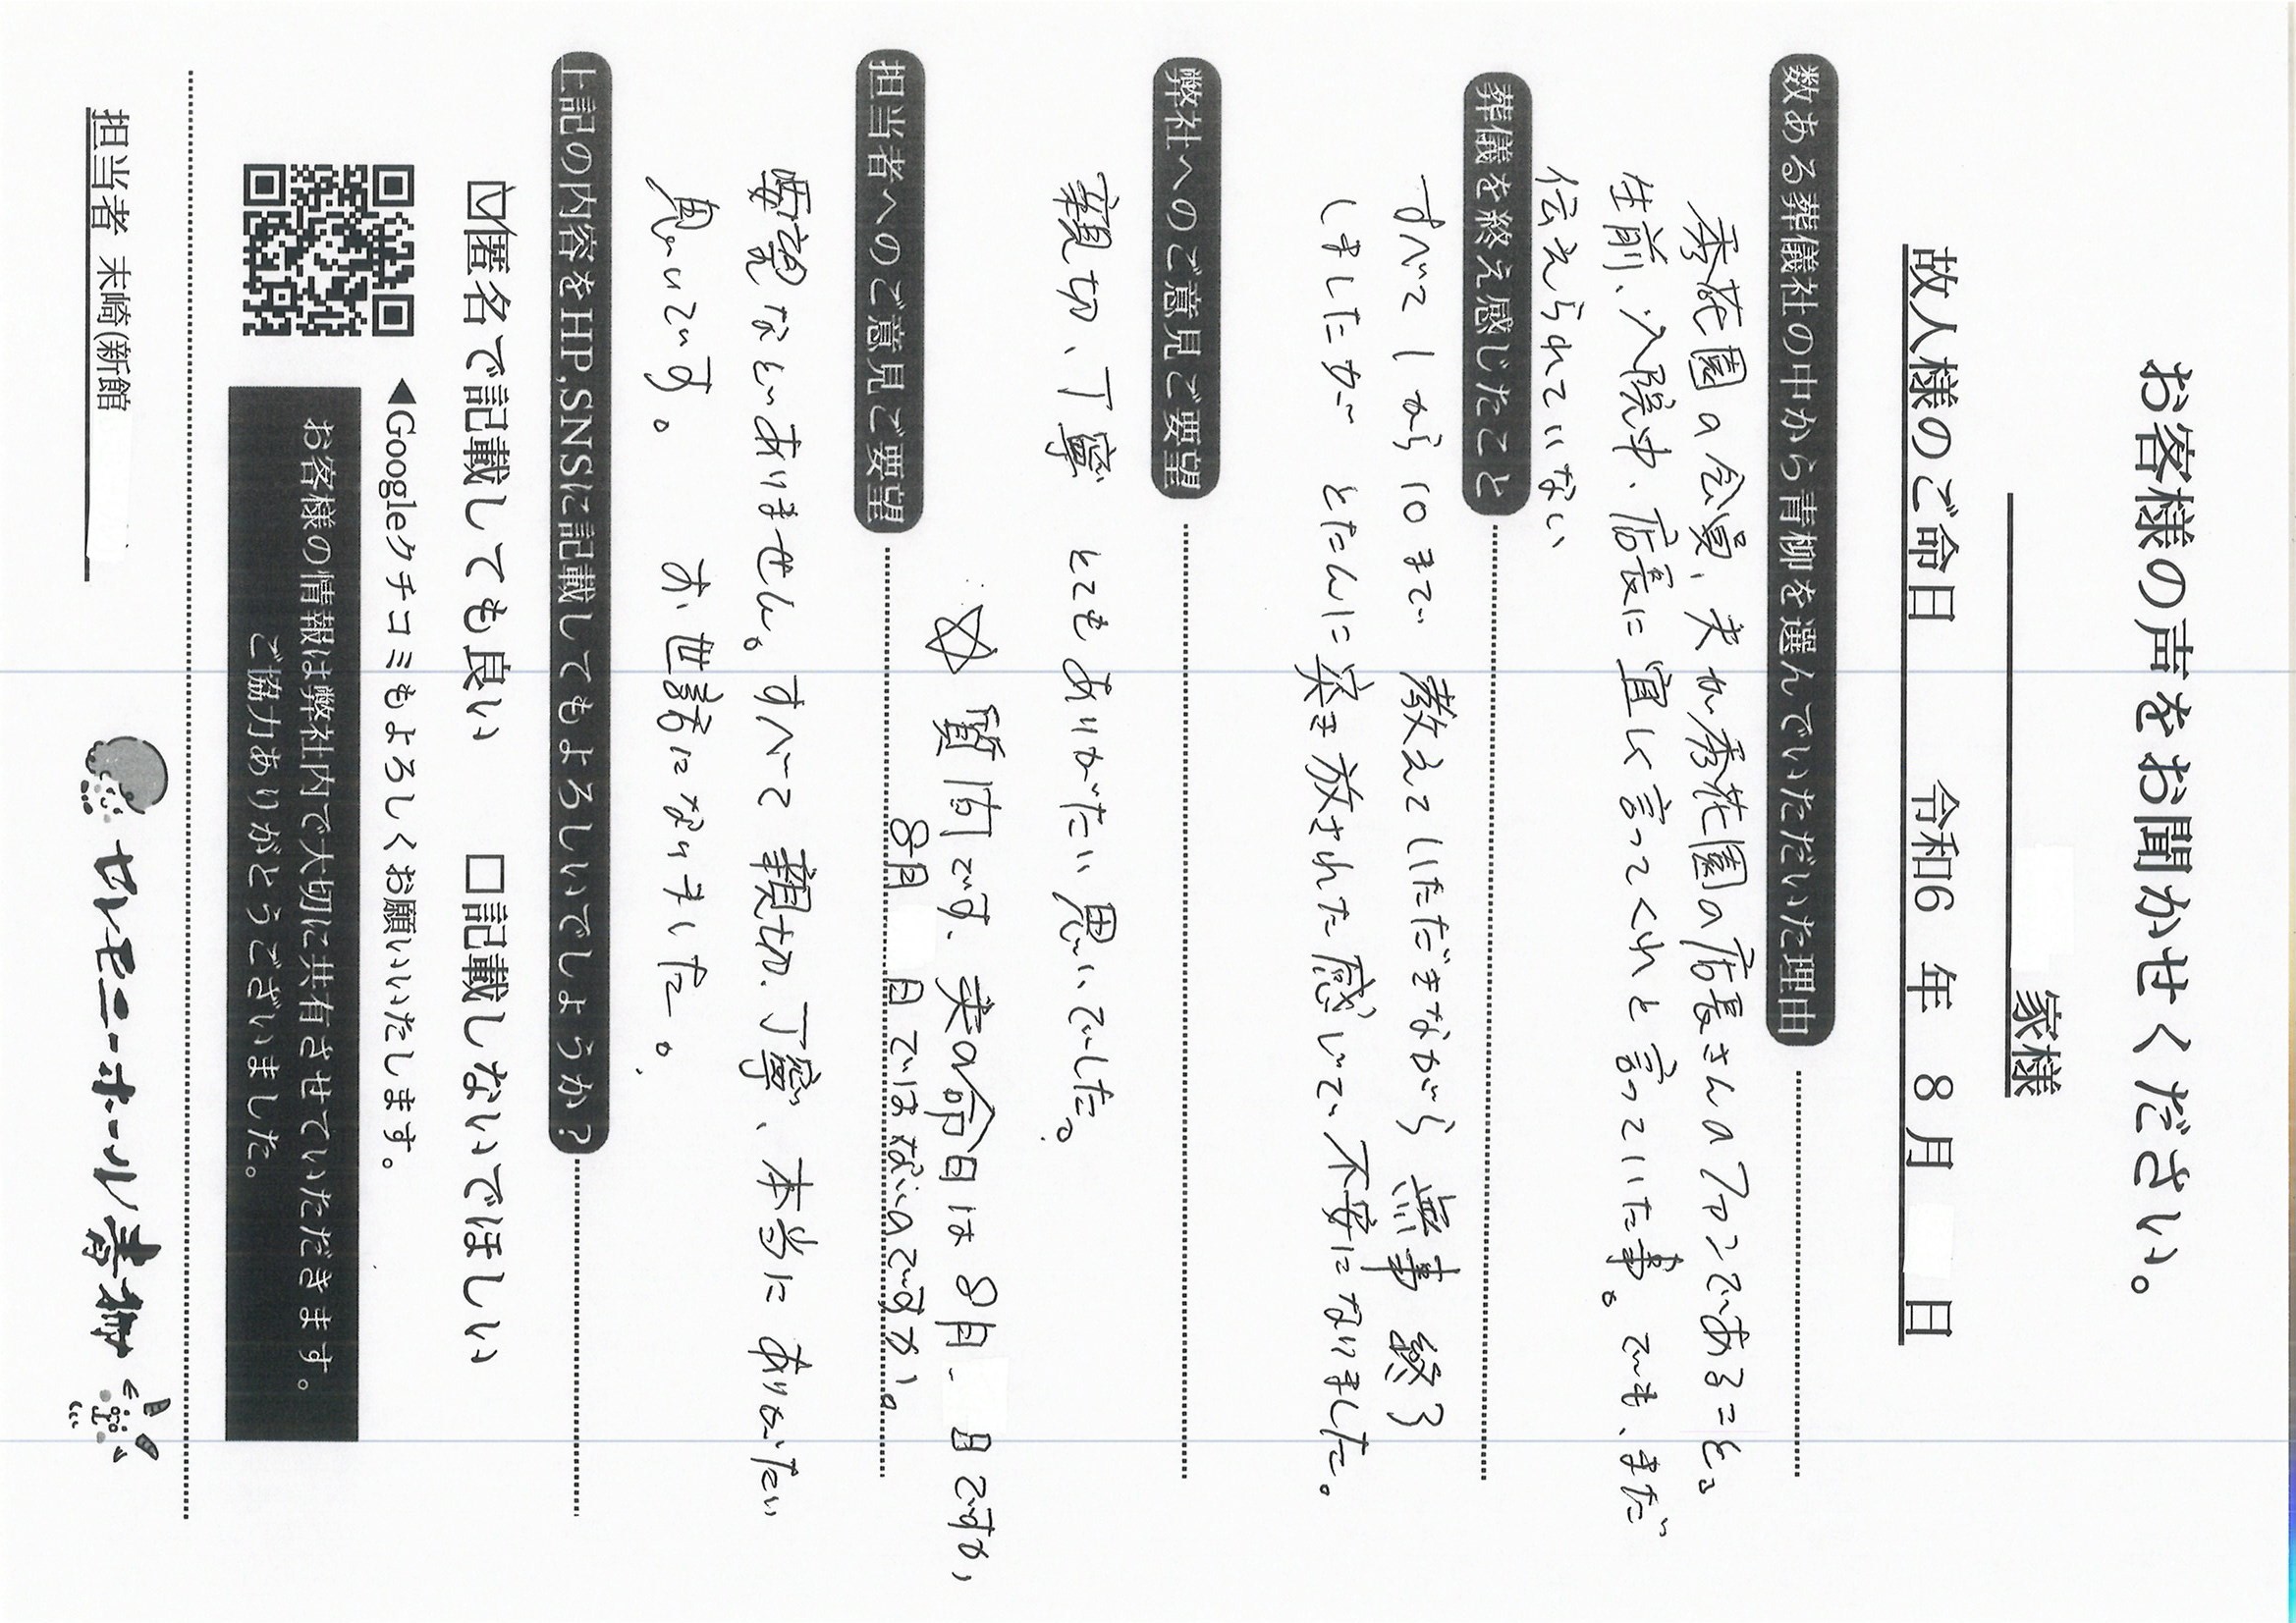 お客様の声をお聞かせください。
家様
故人様のご命日 令和6 年 8 月 日
数ある葬儀社の中から青柳を選んでいただいた理由
秀花園の会員、夫が秀花園の店長さんのファンであること。
生前、入院中、店長に宜しく言ってくれと言っていた事。でも、まだ
伝えられていない
葬儀を終え感じたこと
すべて1から10まで 教えていただきながら 無事 終了
しましたが とたんに突き放された感じで、不安になりました。
弊社へのご意見ご要望
親切、丁寧 とてもありがたい思いでした。
☆ 質問です、夫の命日は 8月、 日ですか、
8月 日ではないのですか。
担当者へのご意見ご要望
要望などありません。すべて 親切、丁寧、本当に ありがたい
思いです。 お世話になりました。
上記の内容をHP,SNSに記載してもよろしいでしょうか?
☑匿名で記載しても良い □記載しないでほしい
◀Googleクチコミもよろしくお願いいたします。
お客様の情報は弊社内で大切に共有させていただきます。
ご協力ありがとうございました。
担当者 末崎(新館
セレモニーホール青柳